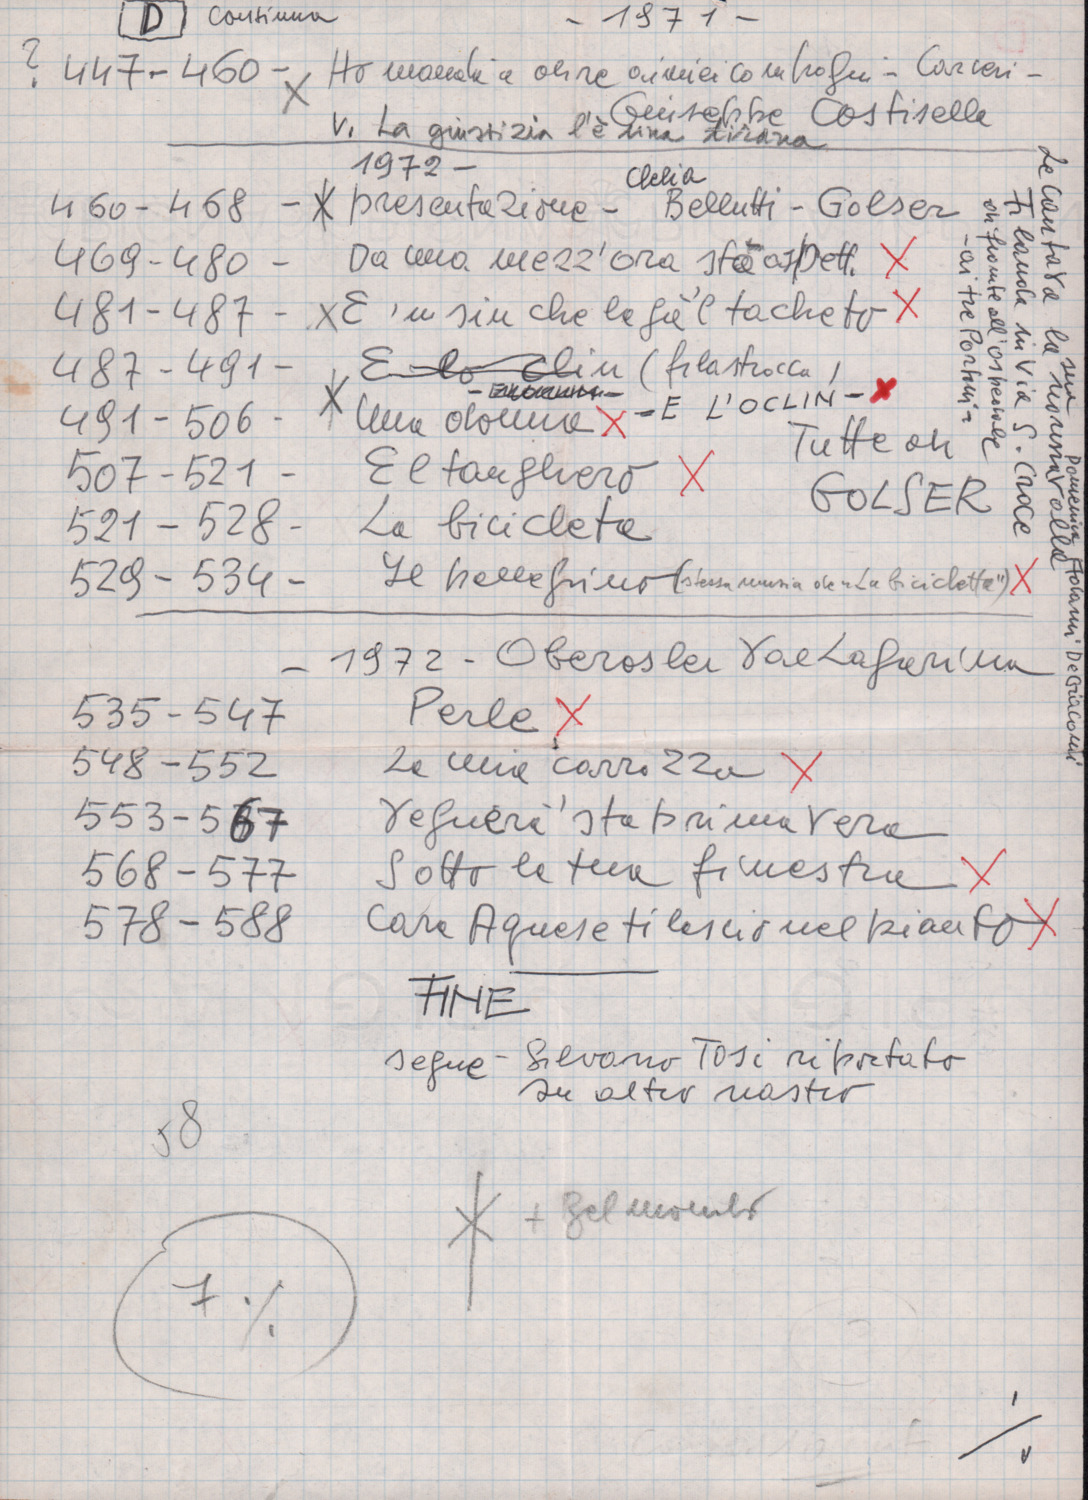 D continua - 1971 -
? 447 - 460 - X Ho mandà a dire ai miei compagni - Carceri -
Giuseppe Costisella
V. La giustizia l'è una tirana
1972 -
460 - 468 - X presentazione - Clelia Bellutti - Golser
469 - 480 - Da una mezz'ora stò aspett. X
481 - 487 - X E 'nsin che la gà 'l tacheto X
487 - 491 - E lo clin (filastrocca)
- E L'OCLIN - X
491 - 506 - X Una donna X
507 - 521 - El tanghero X
Tutte di
GOLSER
521 - 528 - La bicicleta
529 - 534 - Il pellegrino (stessa musica di "La bicicletta") X
Le cantava la sua nonna alla
Filanda in via S. Croce
di fronte all'ospedale
- ai tre Portoni -
- 1972 - Oberosler Vallagarina
535 - 547 Perle X
548 - 552 La mia carrozza X
553 - 567 Vegnerà 'sta primavera
568 - 577 Sotto la tua finestra X
578 - 588 Cara Agnese ti lascio nel pianto X
FINE
segue - Silvano Tosi riportato
su altro nastro
58
7 ./.
X + Bel